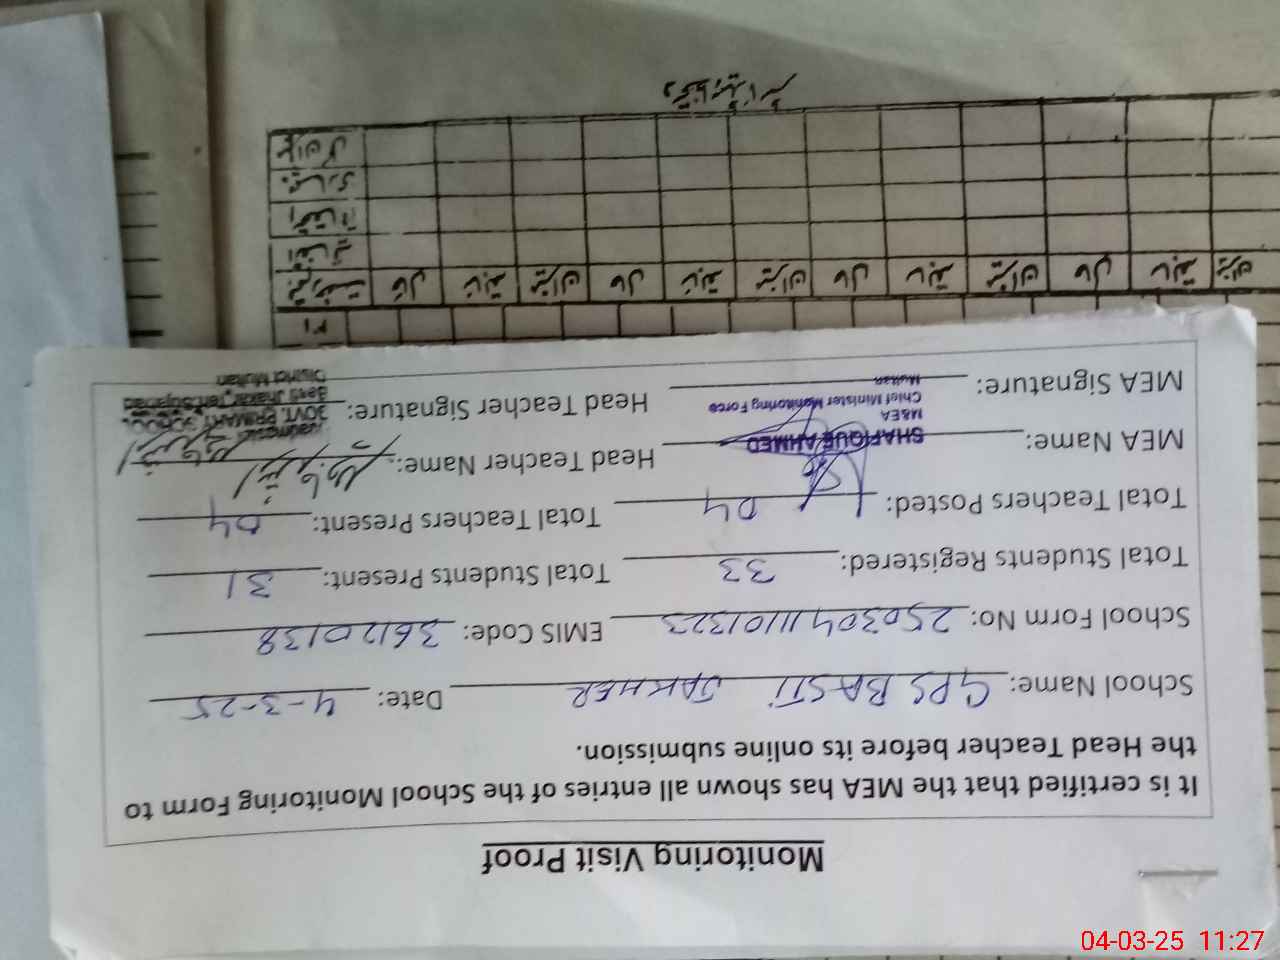 Monitoring Visit Proof
It is certified that the MEA has shown all entries of the School Monitoring Form to
the Head Teacher before its online submission.
School Name: GPS BASTI JAKHER Date: 4-3-25
School Form No: 25030411101323 EMIS Code: 36120138
Total Students Registered: 33 Total Students Present: 31
Total Teachers Posted: 04 Total Teachers Present: 04
MEA Name: SHAFIQUE AHMED Head Teacher Name:
M&EA
Chief Minister Monitoring Force
Multan
MEA Signature: Head Teacher Signature:
GOVT. PRIMARY SCHOOL
District Multan
۳۱
حال سابقہ میزان حال سابقہ میزان حال سابقہ میزان حال سابقہ میزان
میزان کل
04-03-25 11:27